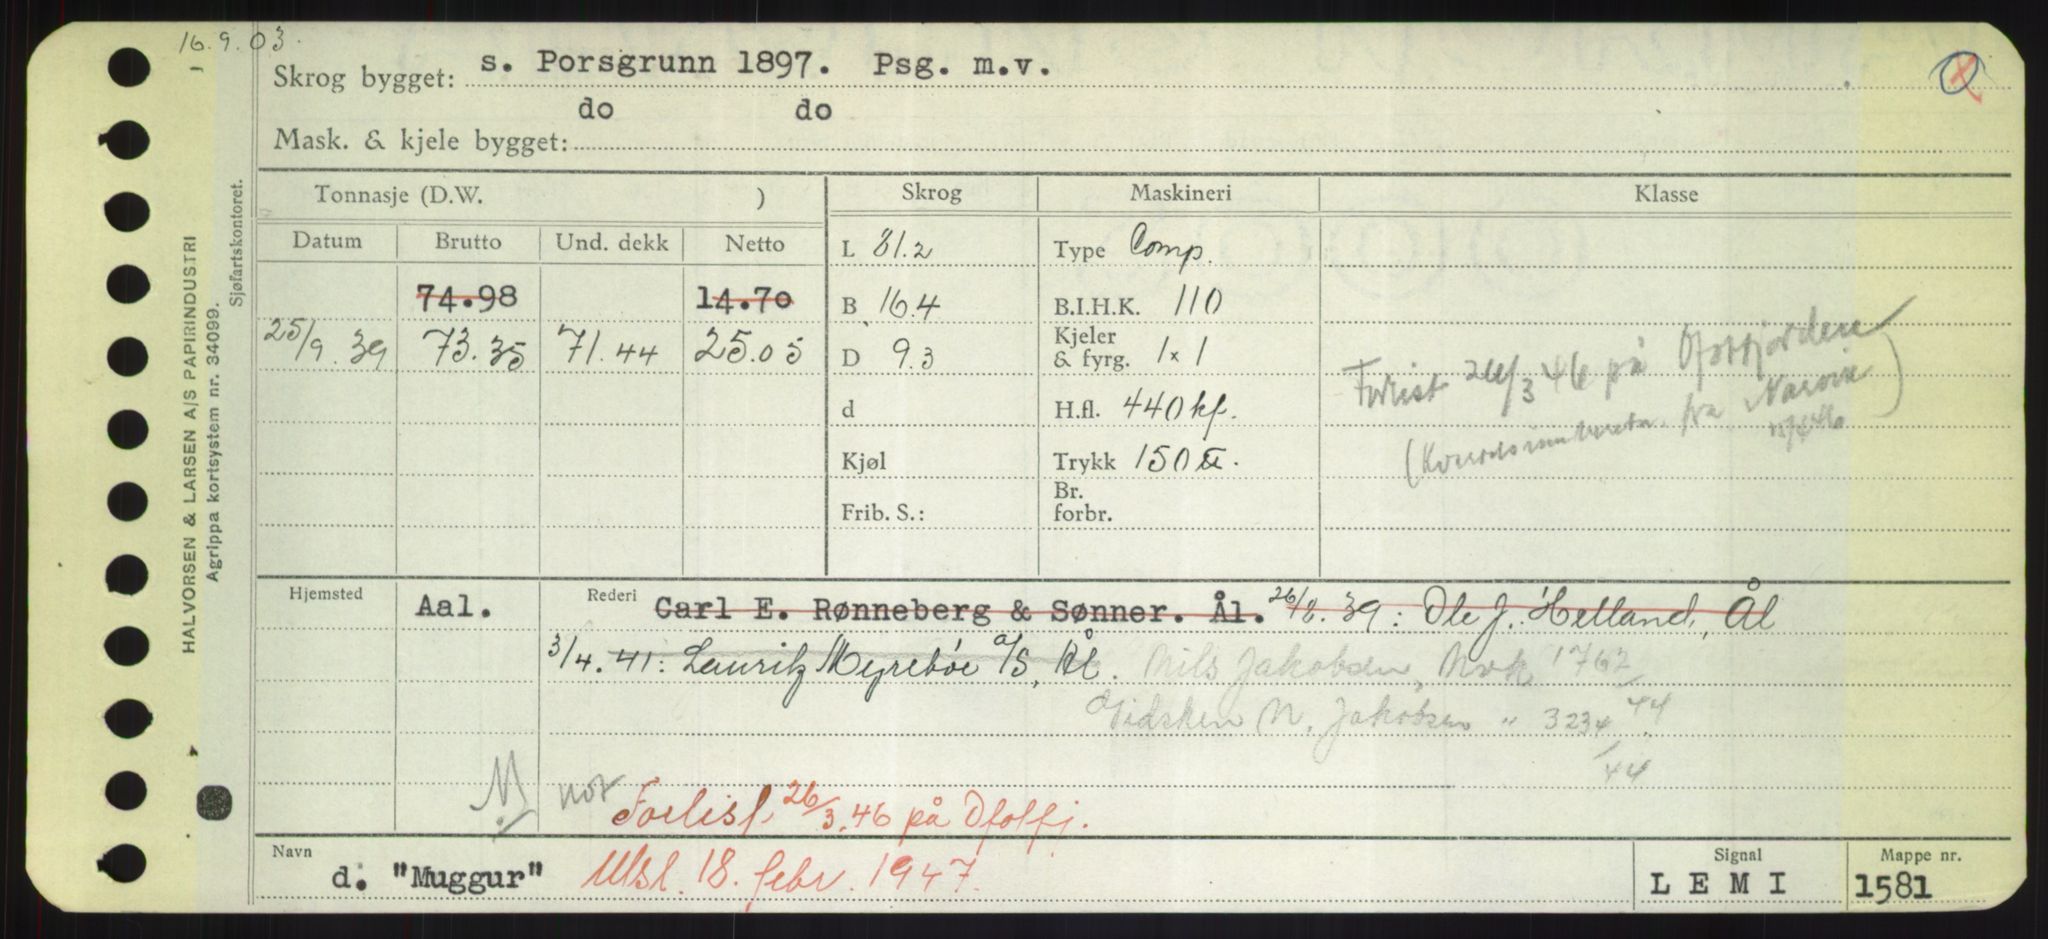 16.9.03.
Skrog bygget: s. Porsgrunn 1897. Psg. m.v.
do do
Mask. & kjele bygget:
HALVORSEN & LARSEN A/S PAPIRINDUSTRI
Agrippa kortsystem nr. 34099.
Sjøfartskontoret.
Tonnasje (D.W. ) Skrog Maskineri Klasse
Datum Brutto Und. dekk Netto
L 81.2 Type Comp.
74.98 14.70 B 16.4 B.I.H.K. 110
25/9.39 73.35 71.44 25.05 D 9.3 Kjeler & fyrg. 1x1
d H.fl. 440 kf.
Kjøl Trykk 150 ℔.
Frib. S.: Br. forbr.
Forlist 26/3 46 på Ofotfjorden
( fra Narvik
46)
Hjemsted Aal. Rederi Carl E. Rønneberg & Sønner. Ål. 26/8.39: Ole J. Helland, Ål
3/4.41: Lauritz Myrebøe A/S, Ål. Nils Jakobsen, Nvk 1762/44
Vidsken N. Jakobsen " 3234/44
44
N not
Forlist 26/3.46 på Ofotfj.
Navn d. "Muggur" Utsl. 18. febr. 1947.
Signal L E M I
Mappe nr. 1581